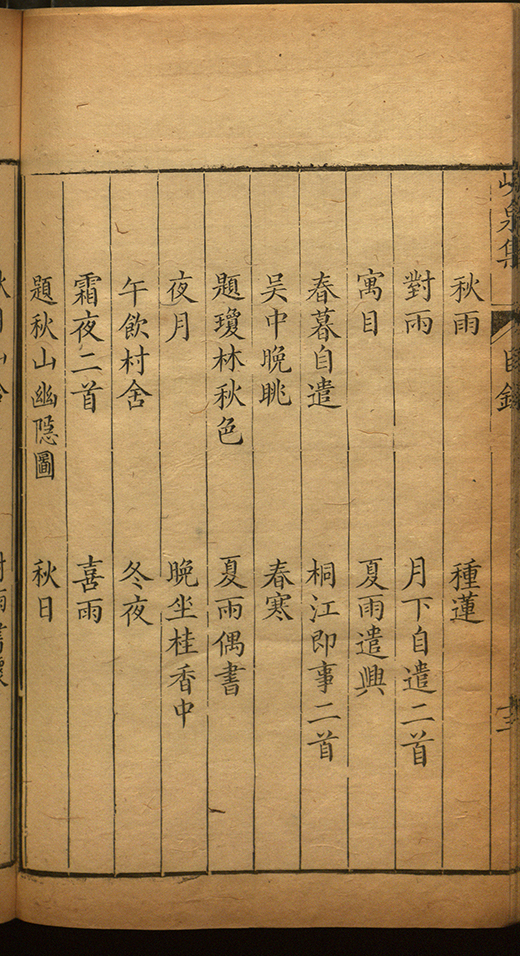 峴泉集
目錄
十三
秋雨 種蓮
對雨 月下自遣二首
寓目 夏雨遣興
春暮自遣 桐江即事二首
吴中晚眺 春寒
題瓊林秋色 夏雨偶書
夜月 晚坐桂香中
午飲村舍 冬夜
霜夜二首 喜雨
題秋山幽隱圖 秋日